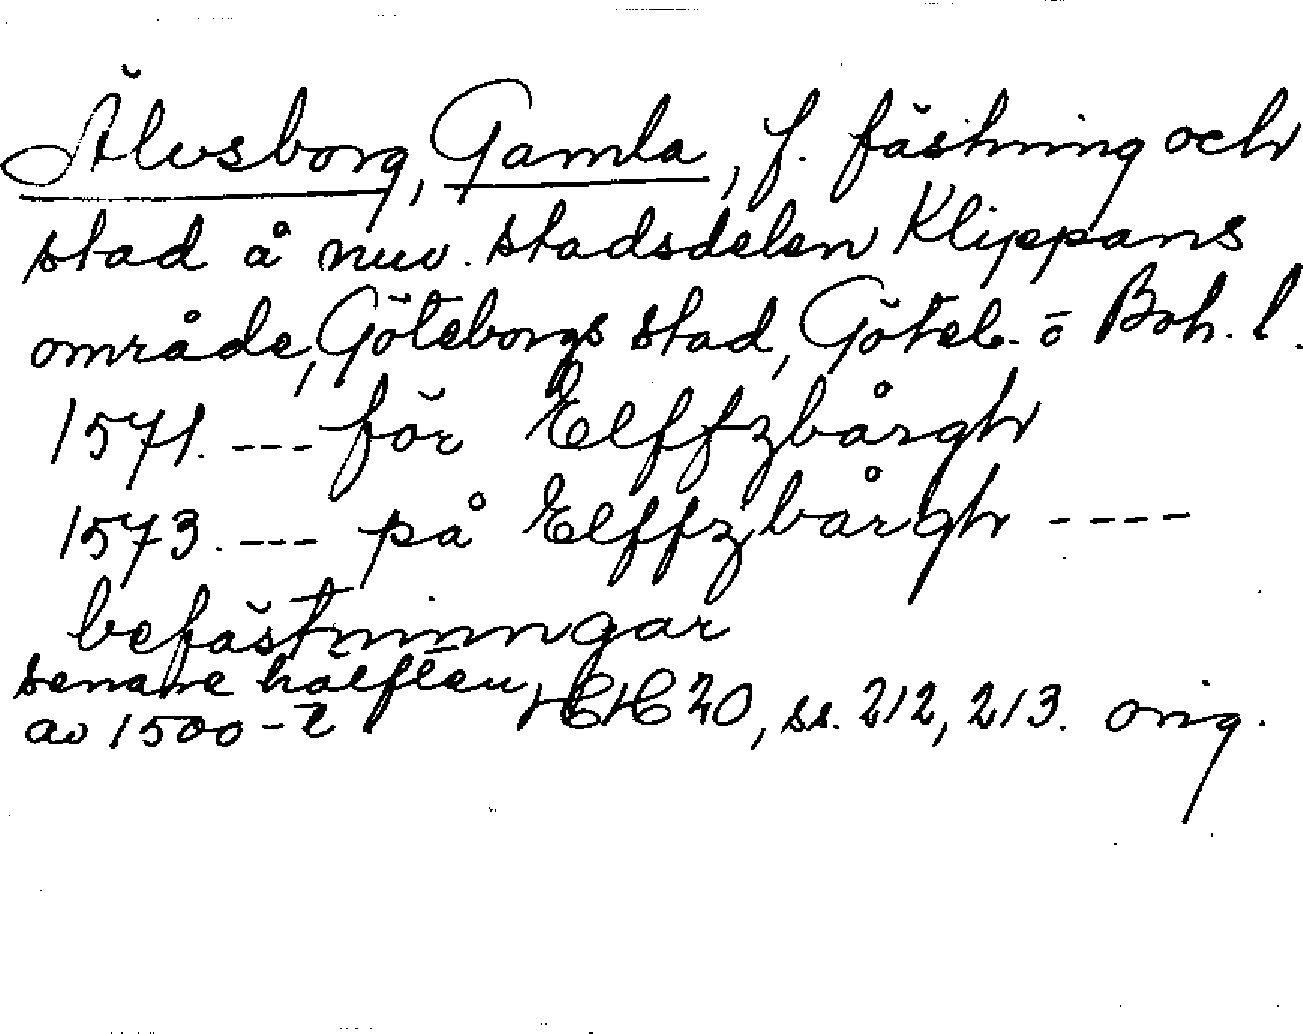 Älvsborg, Gamla, f. fästning och
stad å nuv. stadsdelen Klippans
område, Göteborgs stad, Göteb. o Boh. l.
1571. --- för Elffzbårgh
1573. --- på Elffzbårgh ----
befästningar
senare hälften
av 1500-t HH 20, ss. 212, 213. orig.